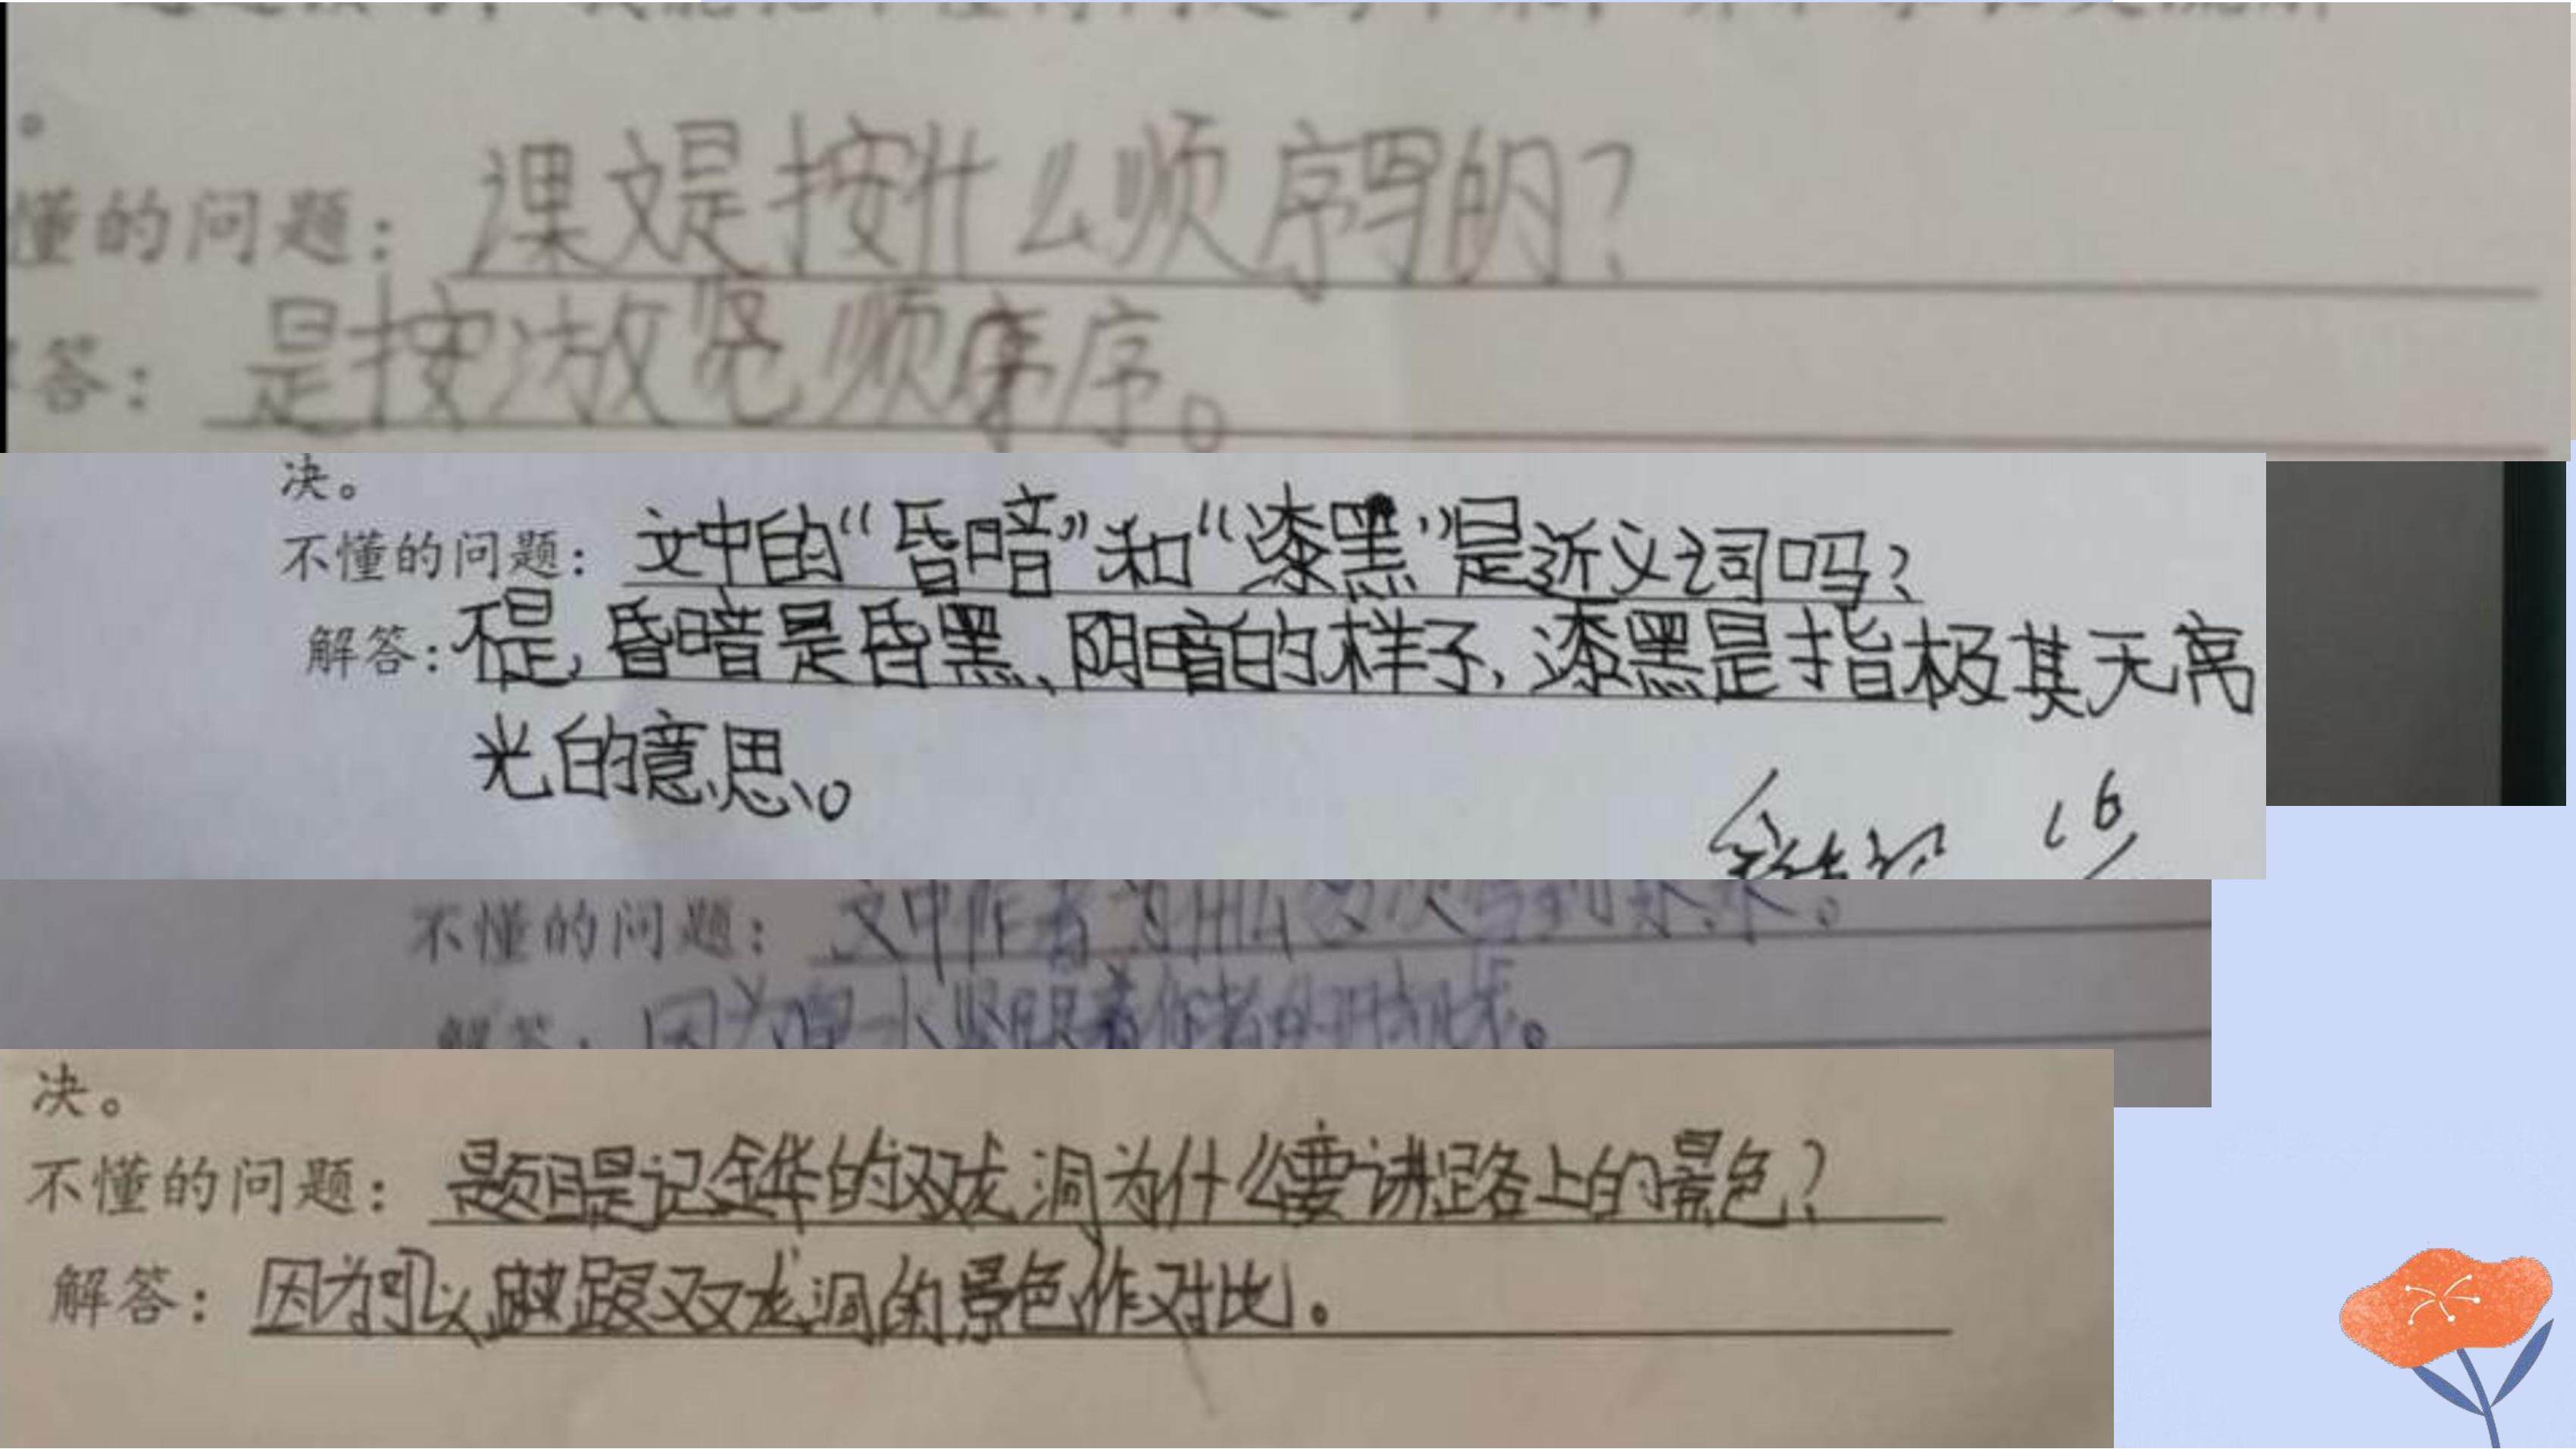 。
懂的问题：课文是按什么顺序写的？
答：是按游览顺序。
决。
不懂的问题：文中的“昏暗”和“漆黑”是近义词吗？
解答：不是，昏暗是昏黑、阴暗的样子，漆黑是指极其无亮
光的意思。
不懂的问题：文中作者为什么多次写到
解答：因为
决。
不懂的问题：题目是记金华的双龙洞为什么要讲路上的景色？
解答：因为可以跟双龙洞的景色作对比。